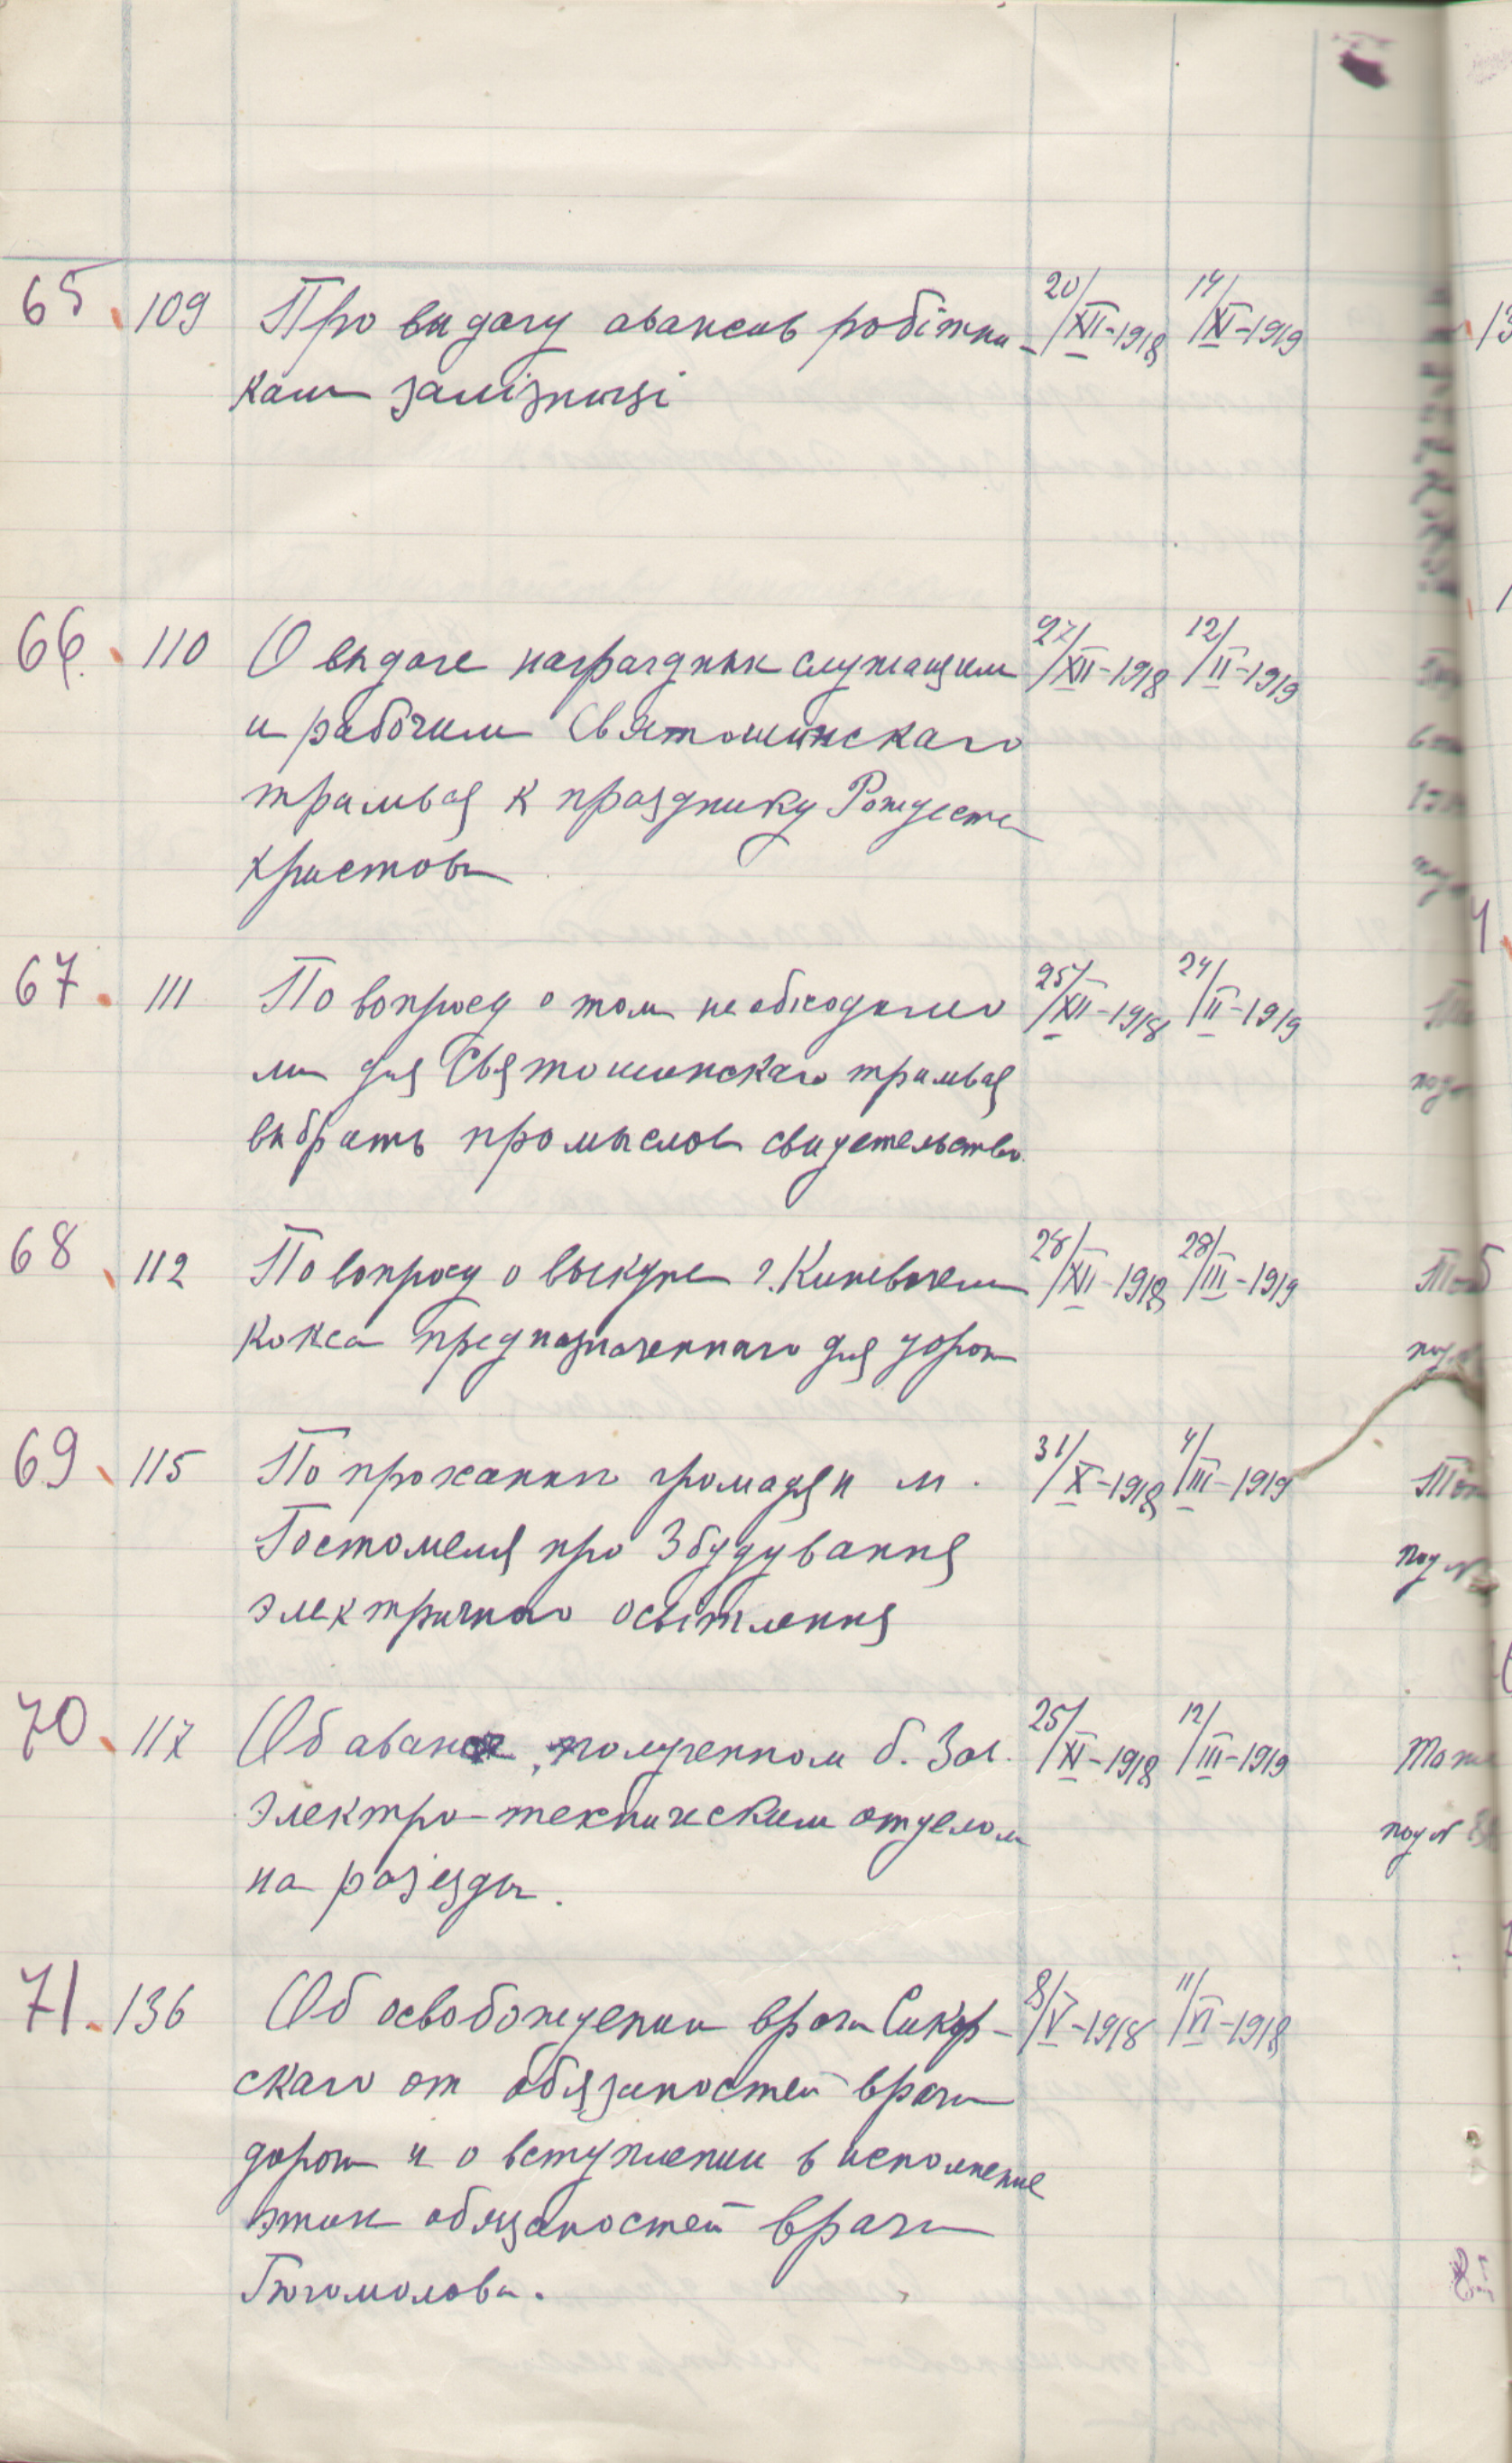 65. 109 Про видачу авансів робітни- 20/XII-1918 14/XI-1919
кам залізниці
66. 110 О выдаче наградных служащим 27/XII-1918 12/II-1919
и рабочим Святошинскаго
трамвая к празднику Рождества
Христова
67. 111 По вопросу о том необходимо 25/XII-1918 24/II-1919
ли для Святошинскаго трамвая
выбрать промыслов свидетельство
68. 112 По вопросу о выкупе г. 28/XII-1918 28/III-1919
кокса предназначеннаго для дорог
69. 115 По проханню громадян м. 31/X-1918 4/III-1919
Гостомеля про збудування
электричного освітлення
70. 117 Об авансе, полученном б. Зав. 25/XI-1918 12/III-1919
электро-техническим отделом
на разъезды.
71. 136 Об освобождении врача Сикор- 8/V-1918 11/VI-1918
скаго от обязаностей врача
дороги и о вступлении в исполнение
этих обязаностей врача
Богомолова.